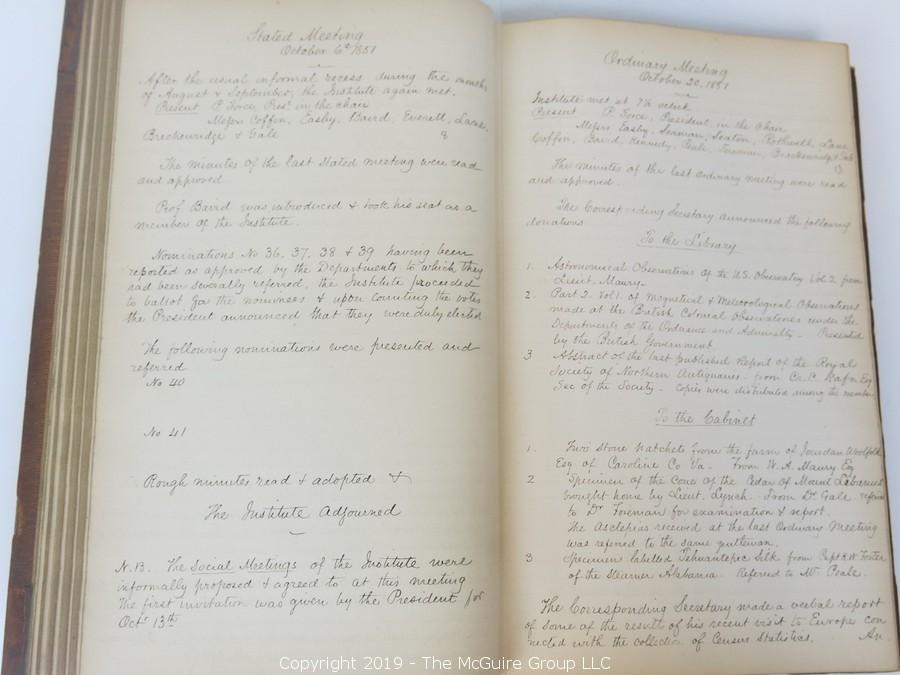 Stated Meeting
October 6th 1851
After the usual informal recess during the months
of August & September, the Institute again met.
Present P. Force, Prest. in the chair
Messrs Coffin, Easby, Baird, Everett, Lane,
Breckenridge & Gale 8
The minutes of the last Stated meeting were read
and approved.
Prof. Baird was introduced & took his seat as a
member of the Institute.
Nominations No 36, 37, 38 & 39 having been
reported as approved by the Departments to which they
had been severally referred, the Institute proceeded
to ballot for the nominees & upon counting the votes
the President announced that they were duly elected
The following nominations were presented and
referred
No 40
No 41
Rough minutes read & adopted &
The Institute Adjourned
N.B. The Social Meetings of the Institute were
informally proposed & agreed to at this meeting
The first invitation was given by the President for
Octr 13th
Ordinary Meeting
October 20, 1851
Institute met at 7½ oclock
Present P. Force, President, in the chair
Messrs, Easby, Seaman, Seaton, Rothwell, Lane
Coffin, Baird, Kennedy, Peale, Foreman, Breckenridge & Gale
13
The minutes of the last ordinary meeting were read
and approved.
The Corresponding Secretary announced the following
donations
To the Library
1. Astronomical Observations of the U.S. Observatory Vol. 2. from
Lieut. Maury.
2. Part 2. Vol 1. of Magnetical & Meteorological Observations
made at the British Colonial Observatories under the
Departments of the Ordnance and Admiralty - Presented
by the British Government
3 Abstract of the last published Report of the Royal
Society of Northern Antiquaries - from Cr. C. Rafn Esq
Sec of the Society - copies were distributed among the members
To the Cabinet
1. Two stone hatchets from the farm of Jourdan Woolfolk
Esq of Caroline Co Va. - From W. A. Maury Esq
2 Specimen of the Cone of the Cedar of Mount Libanus
brought home by Lieut. Lynch. From Dr. Gale. referred
to Dr Foreman for examination & report.
The Asclepias received at the last Ordinary Meeting
was referred to the same gentleman.
3 Specimen labelled Tehuantepec Silk from Capt R.W Foster
of the Steamer Alabama. Referred to Mr Peale.
The Corresponding Secretary made a verbal report
of some of the result of his recent visit to Europe con
nected with the collection of Census Statistics. An
Copyright 2019 - The McGuire Group LLC